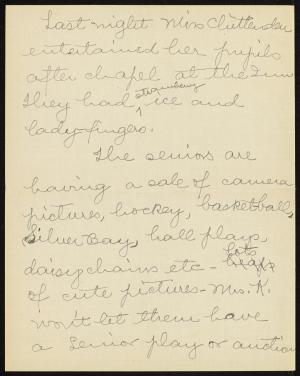 Last night Miss Chittenden
entertained her pupils
after chapel at the Inn
They had strawberry ice and
lady-fingers.
The seniors are
having a sale of camera
pictures, hockey, basketball,
Silver Bay, hall plays,
daisy chains etc - lots
of cute pictures - Mrs. K.
won't let them have
a senior play or auction